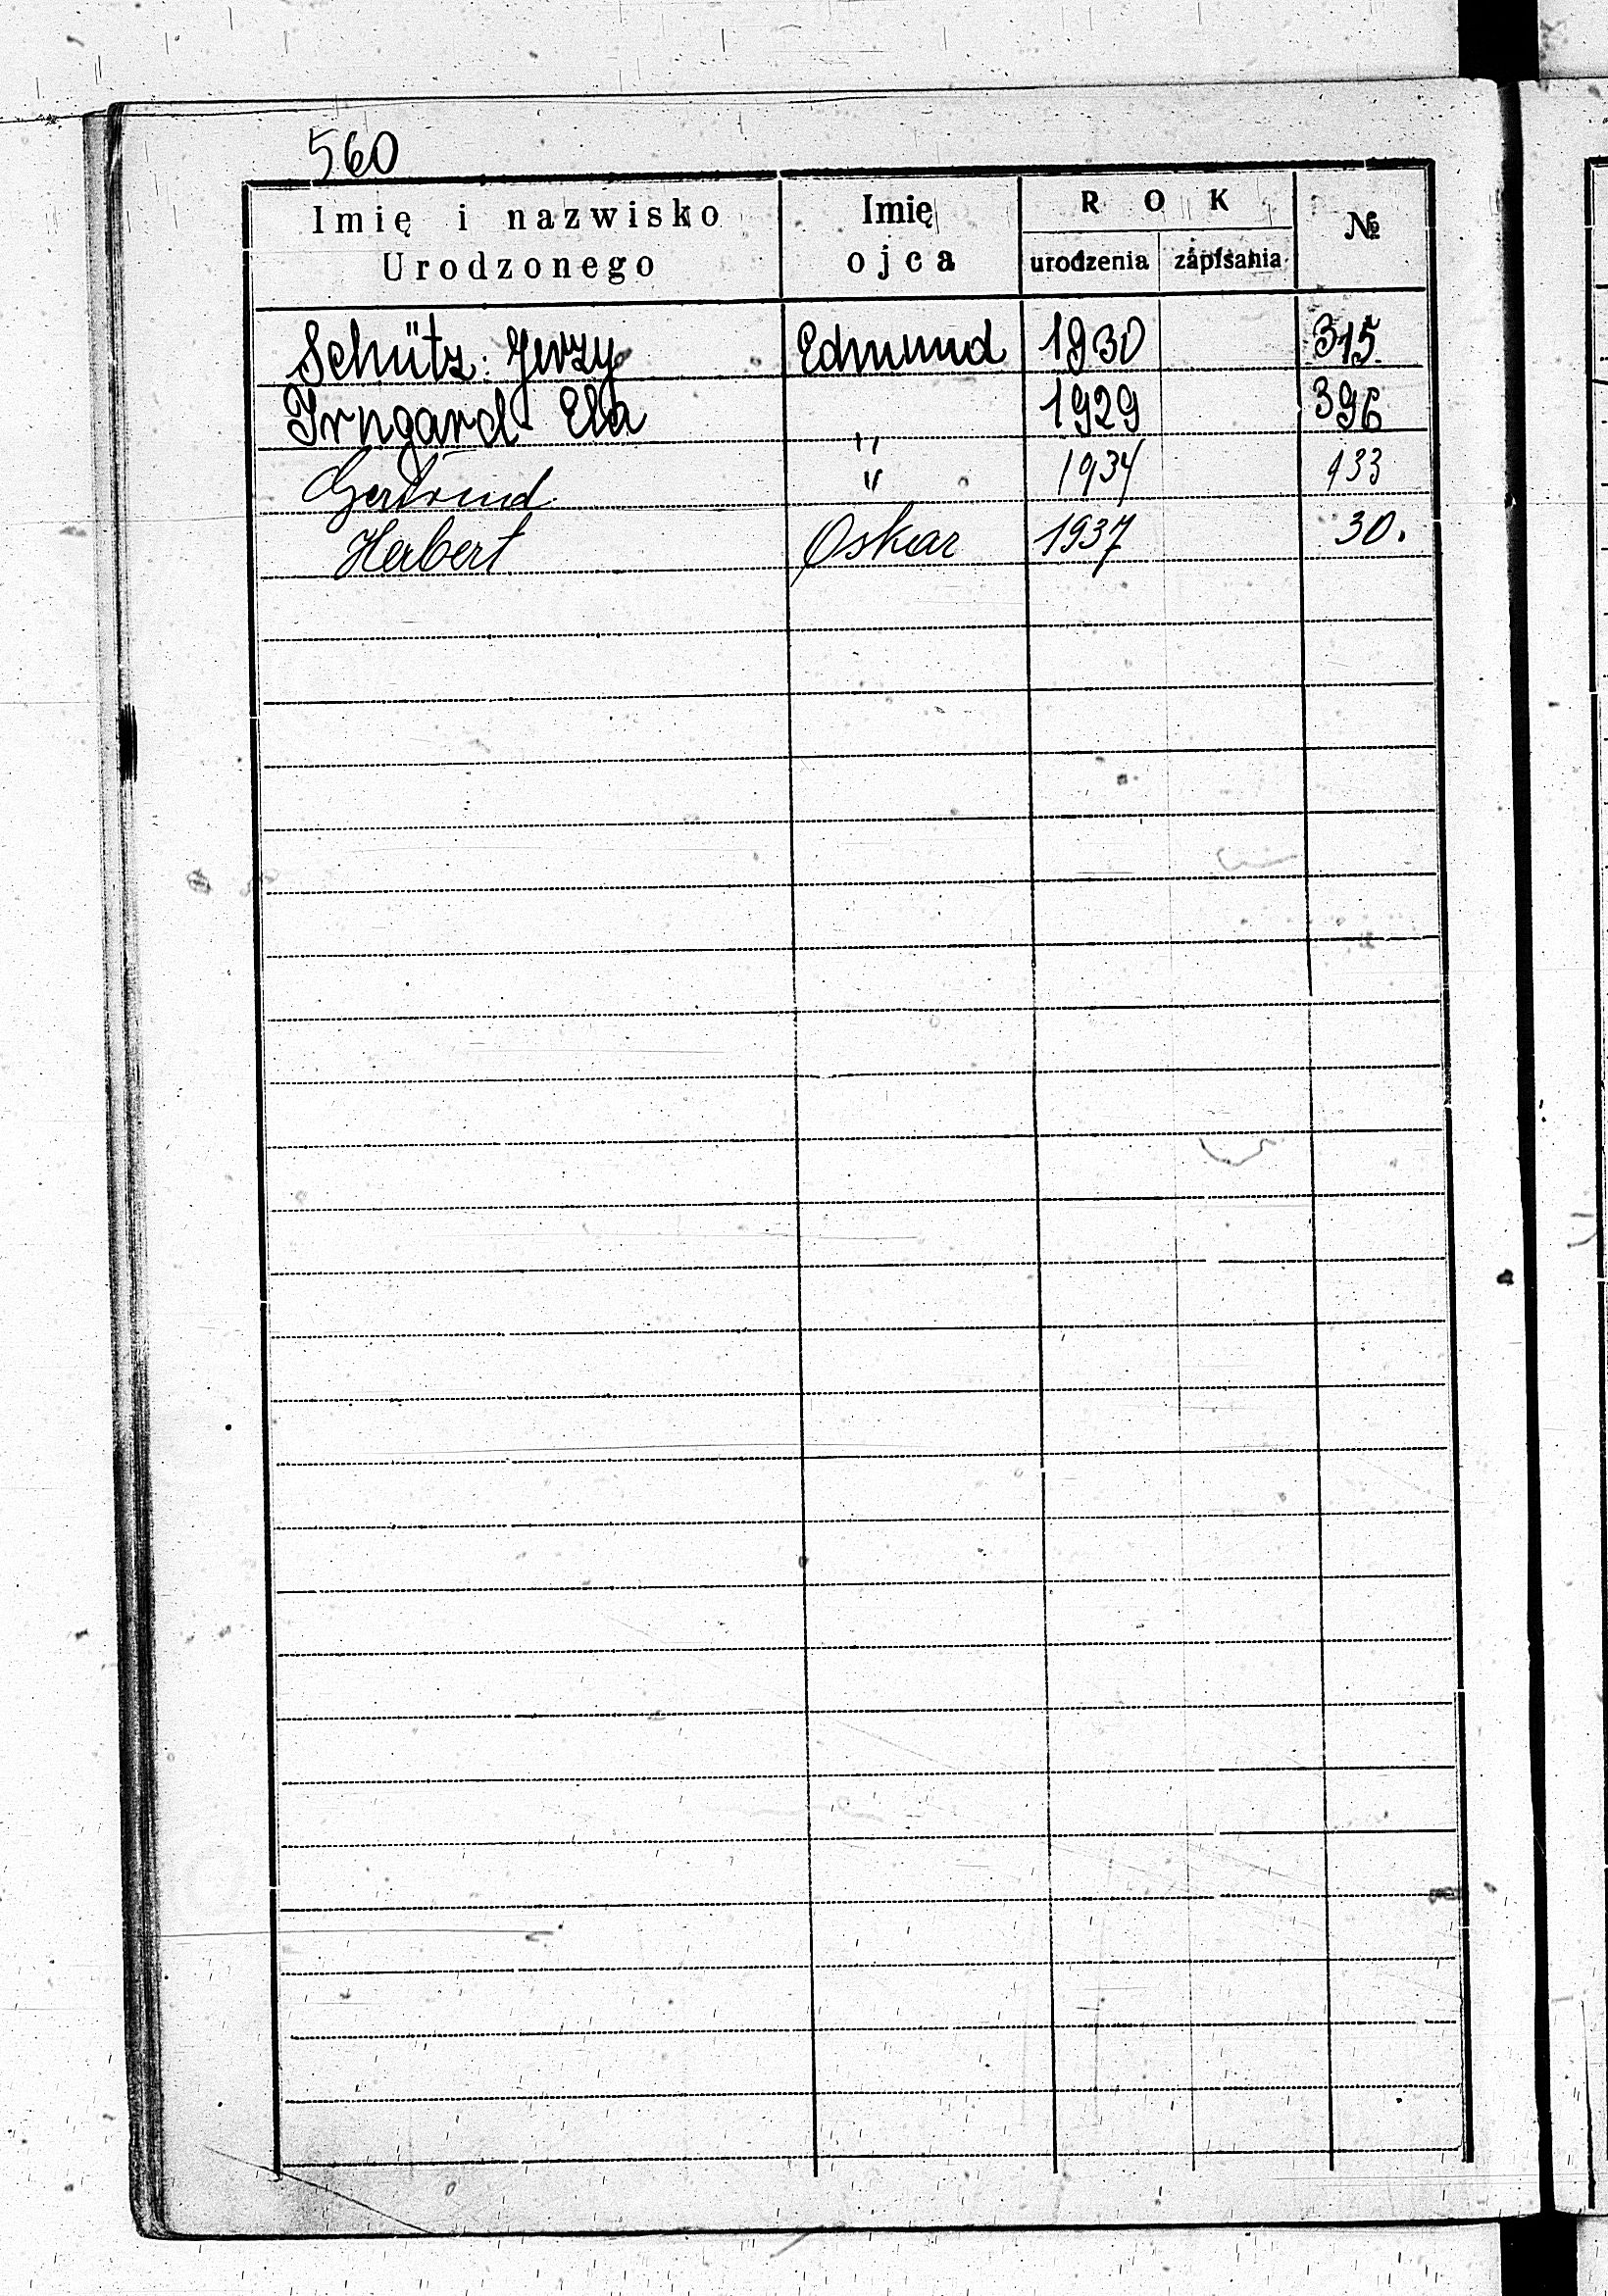 560
Imię i nazwisko Urodzonego
Imię ojca
ROK
№
urodzenia
zapisania
Schütz: Jerzy Edmund 1930 315.
Irngard Ela " 1929 396
Gertrud " 1934 133
Herbert Oskar 1937 30.